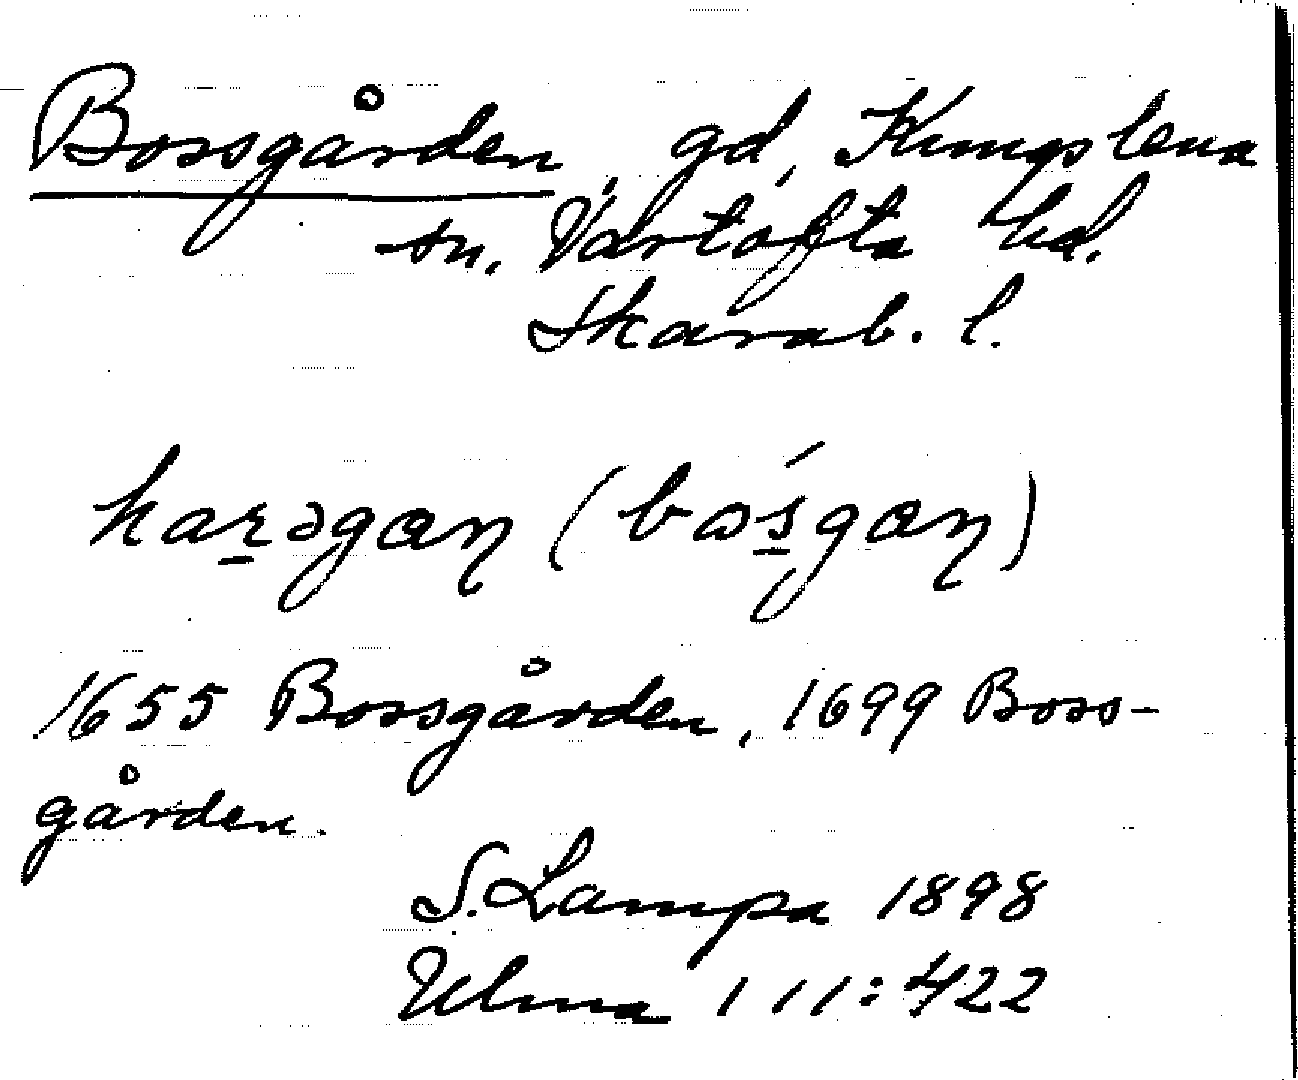 Bossgården, gd, Kungslena
sn. Vartofta hd.
Skarab. l.
harəgaη (bɷsgaη)
1655 Bossgården, 1699 Boss-
gården.
S. Lampa 1898
Ulma 111:422